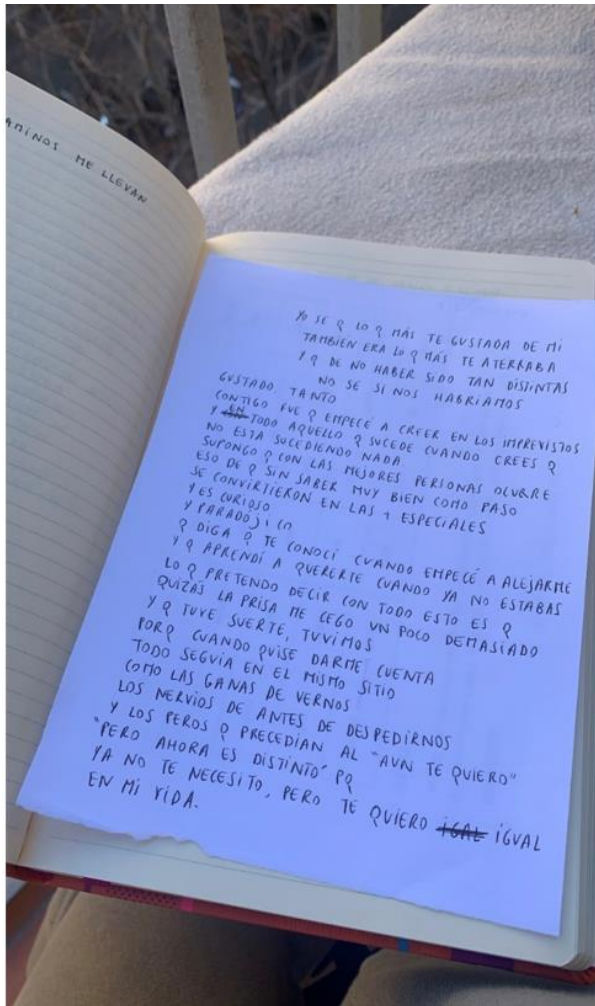 AMINOS ME LLEVAN
YO SE Q LO Q MÁS TE GUSTABA DE MI
TAMBIEN ERA LO Q MÁS TE ATERRABA
Y Q DE NO HABER SIDO TAN DISTINTAS
NO SE SI NOS HABRIAMOS
GUSTADO TANTO
CONTIGO FUE Q EMPECÉ A CREER EN LOS IMPREVISTOS
Y EN TODO AQUELLO Q SUCEDE CUANDO CREES Q
NO ESTA SUCEDIENDO NADA
SUPONGO Q CON LAS MEJORES PERSONAS OCURRE
ESO DE Q SIN SABER MUY BIEN COMO PASO
SE CONVIRTIERON EN LAS + ESPECIALES
Y ES CURIOSO
Y PARADOJICO
Q DIGA Q TE CONOCI CUANDO EMPECÉ A ALEJARME
Y Q APRENDÍ A QUERERTE CUANDO YA NO ESTABAS
LO Q PRETENDO DECIR CON TODO ESTO ES Q
QUIZÁS LA PRISA ME CEGO UN POCO DEMASIADO
Y Q TUVE SUERTE, TUVIMOS
PORQ CUANDO QUISE DARME CUENTA
TODO SEGUIA EN EL MISMO SITIO
COMO LAS GANAS DE VERNOS
LOS NERVIOS DE ANTES DE DESPEDIRNOS
Y LOS PEROS Q PRECEDIAN AL "AUN TE QUIERO"
"PERO AHORA ES DISTINTO" PQ
YA NO TE NECESITO, PERO TE QUIERO IGAL IGUAL
EN MI VIDA.